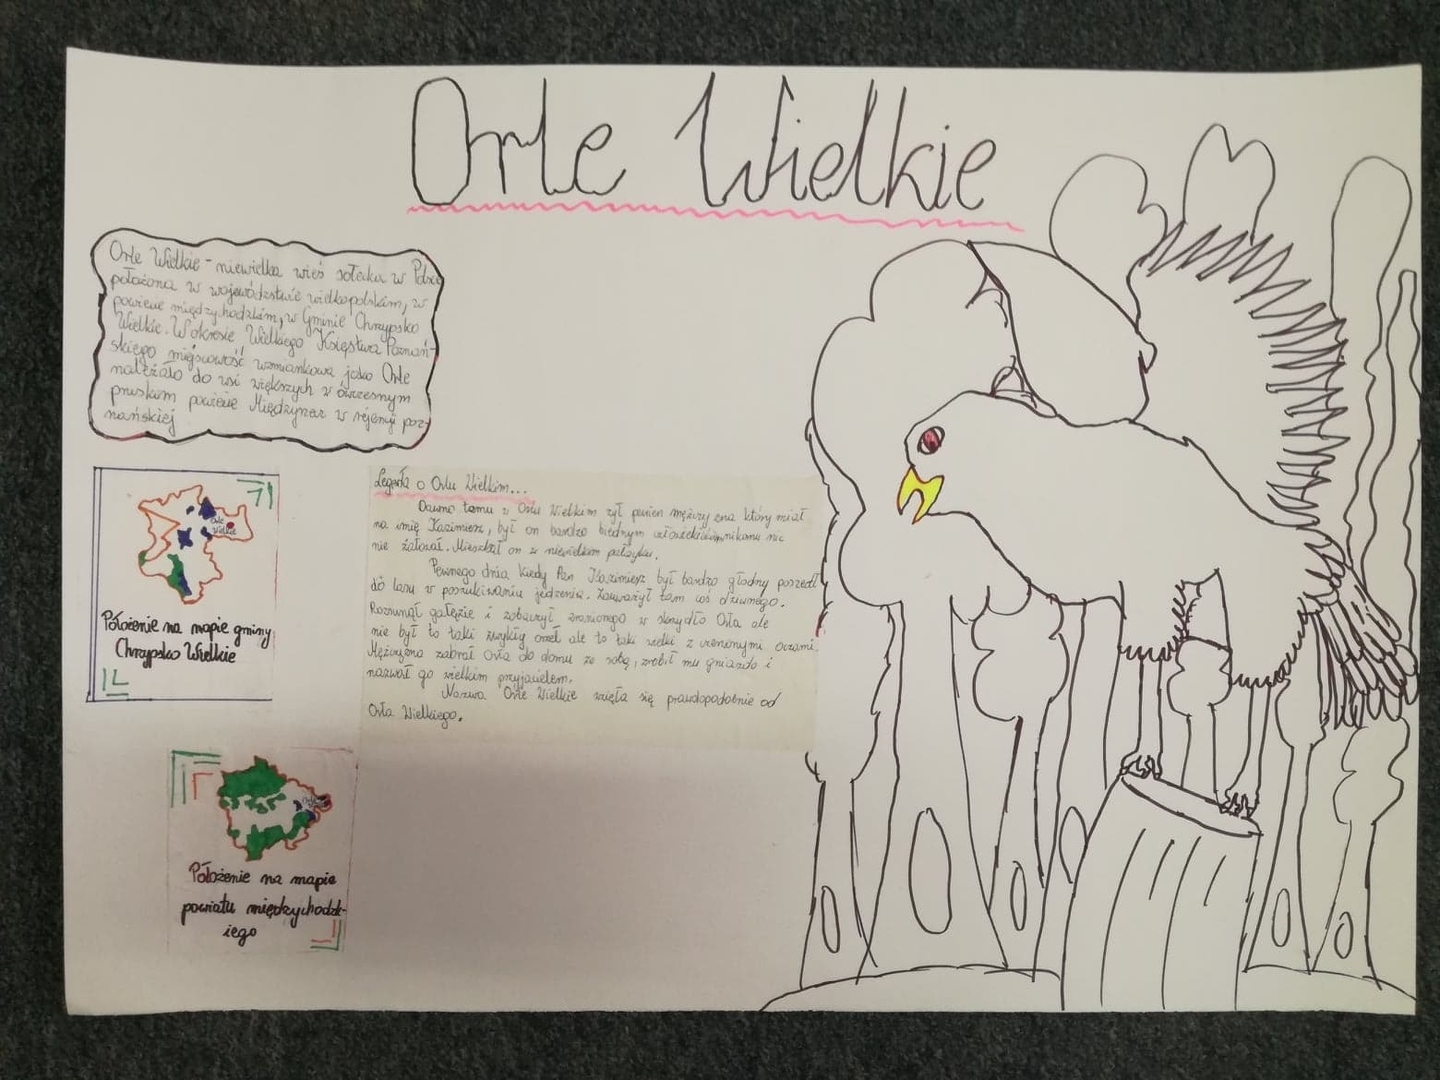 Orle Wielkie
Orle Wielkie - niewielka wieś sołecka w
położona w województwie wielkopolskim, w
powiecie międzychodzkim, w Gminie Chrzypsko
Wielkie. W okresie Wielkiego Księstwa Poznań-
skiego miejscowość wzmiankowa jako Orle
należało do wsi większych w ówczesnym
pruskim powiecie w rejencji poz-
nańskiej
Orle
Wielkie
Położenie na mapie gminy
Chrzypsko Wielkie
Położenie na mapie
powiatu międzychodzk-
iego
Legenda o Orlu Wielkim...
Dawno temu w Orlu Wielkim żył pewien mężczyzna który miał
na imię Kazimierz, był on bardzo biednym nic
nie żałował. Mieszkał on w niewielkim
Pewnego dnia kiedy Pan Kazimierz był bardzo głodny poszedł
do lasu w poszukiwaniu jedzenia. Zauważył tam coś dziwnego.
Rozsunął gałęzie i zobaczył zranionego w skrzydło Orła ale
nie był to taki zwykły orzeł ale to taki wielki z czerwonymi oczami.
Mężczyzna zabrał Orła do domu ze sobą, zrobił mu gniazdo i
nazwał go wielkim przyjacielem.
Nazwa Orle Wielkie wzięła się prawdopodobnie od
Orła Wielkiego.